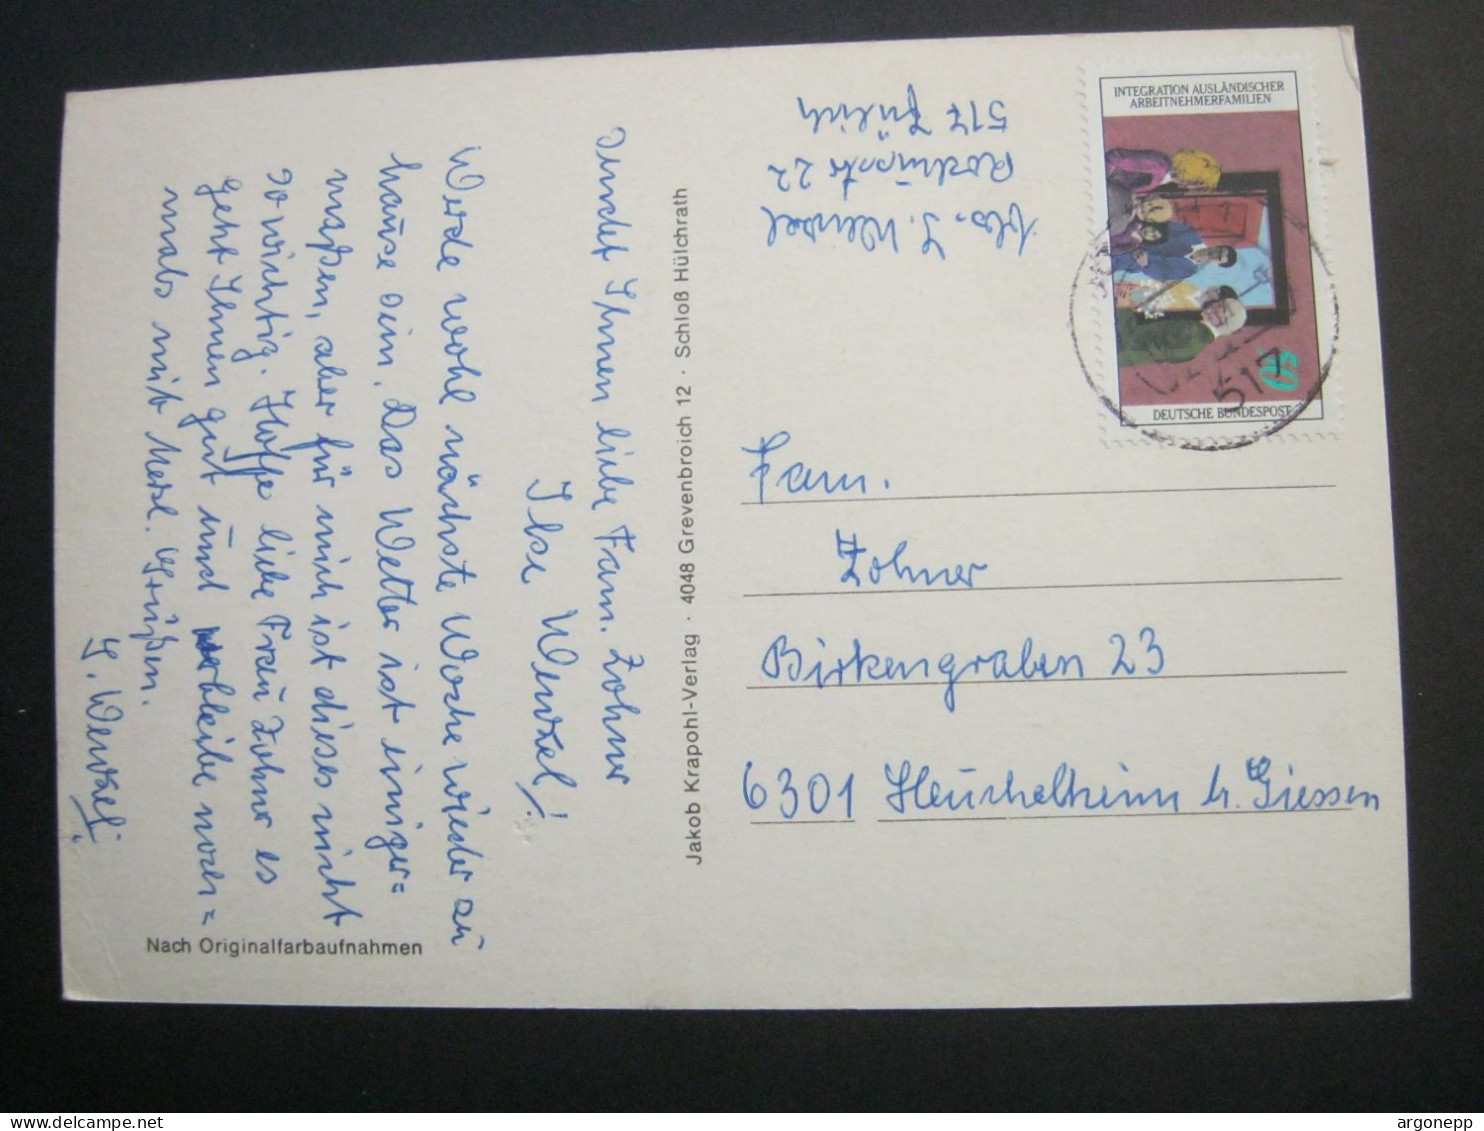 sendet Ihnen liebe Fam. Zohner
Ilse Wenzel!
Werde wohl nächste Woche wieder zu
hause sein. Das Wetter ist einiger=
maßen, aber für mich ist dieses nicht
so wichtig. Hoffe liebe Frau Zohner es
geht Ihnen gut und verbleibe noch=
mals mit Herzl. Grüßen.
I. Wenzel!
Nach Originalfarbaufnahmen
Jakob Krapohl-Verlag · 4048 Grevenbroich 12 · Schloß Hülchrath
Abs. I. Wenzel
22
517 Jülich
INTEGRATION AUSLÄNDISCHER
ARBEITNEHMERFAMILIEN
50
DEUTSCHE BUNDESPOST
517
Fam.
Zohner
Birkengraben 23
6301 Heuchelheim b. Giessen
argonepp